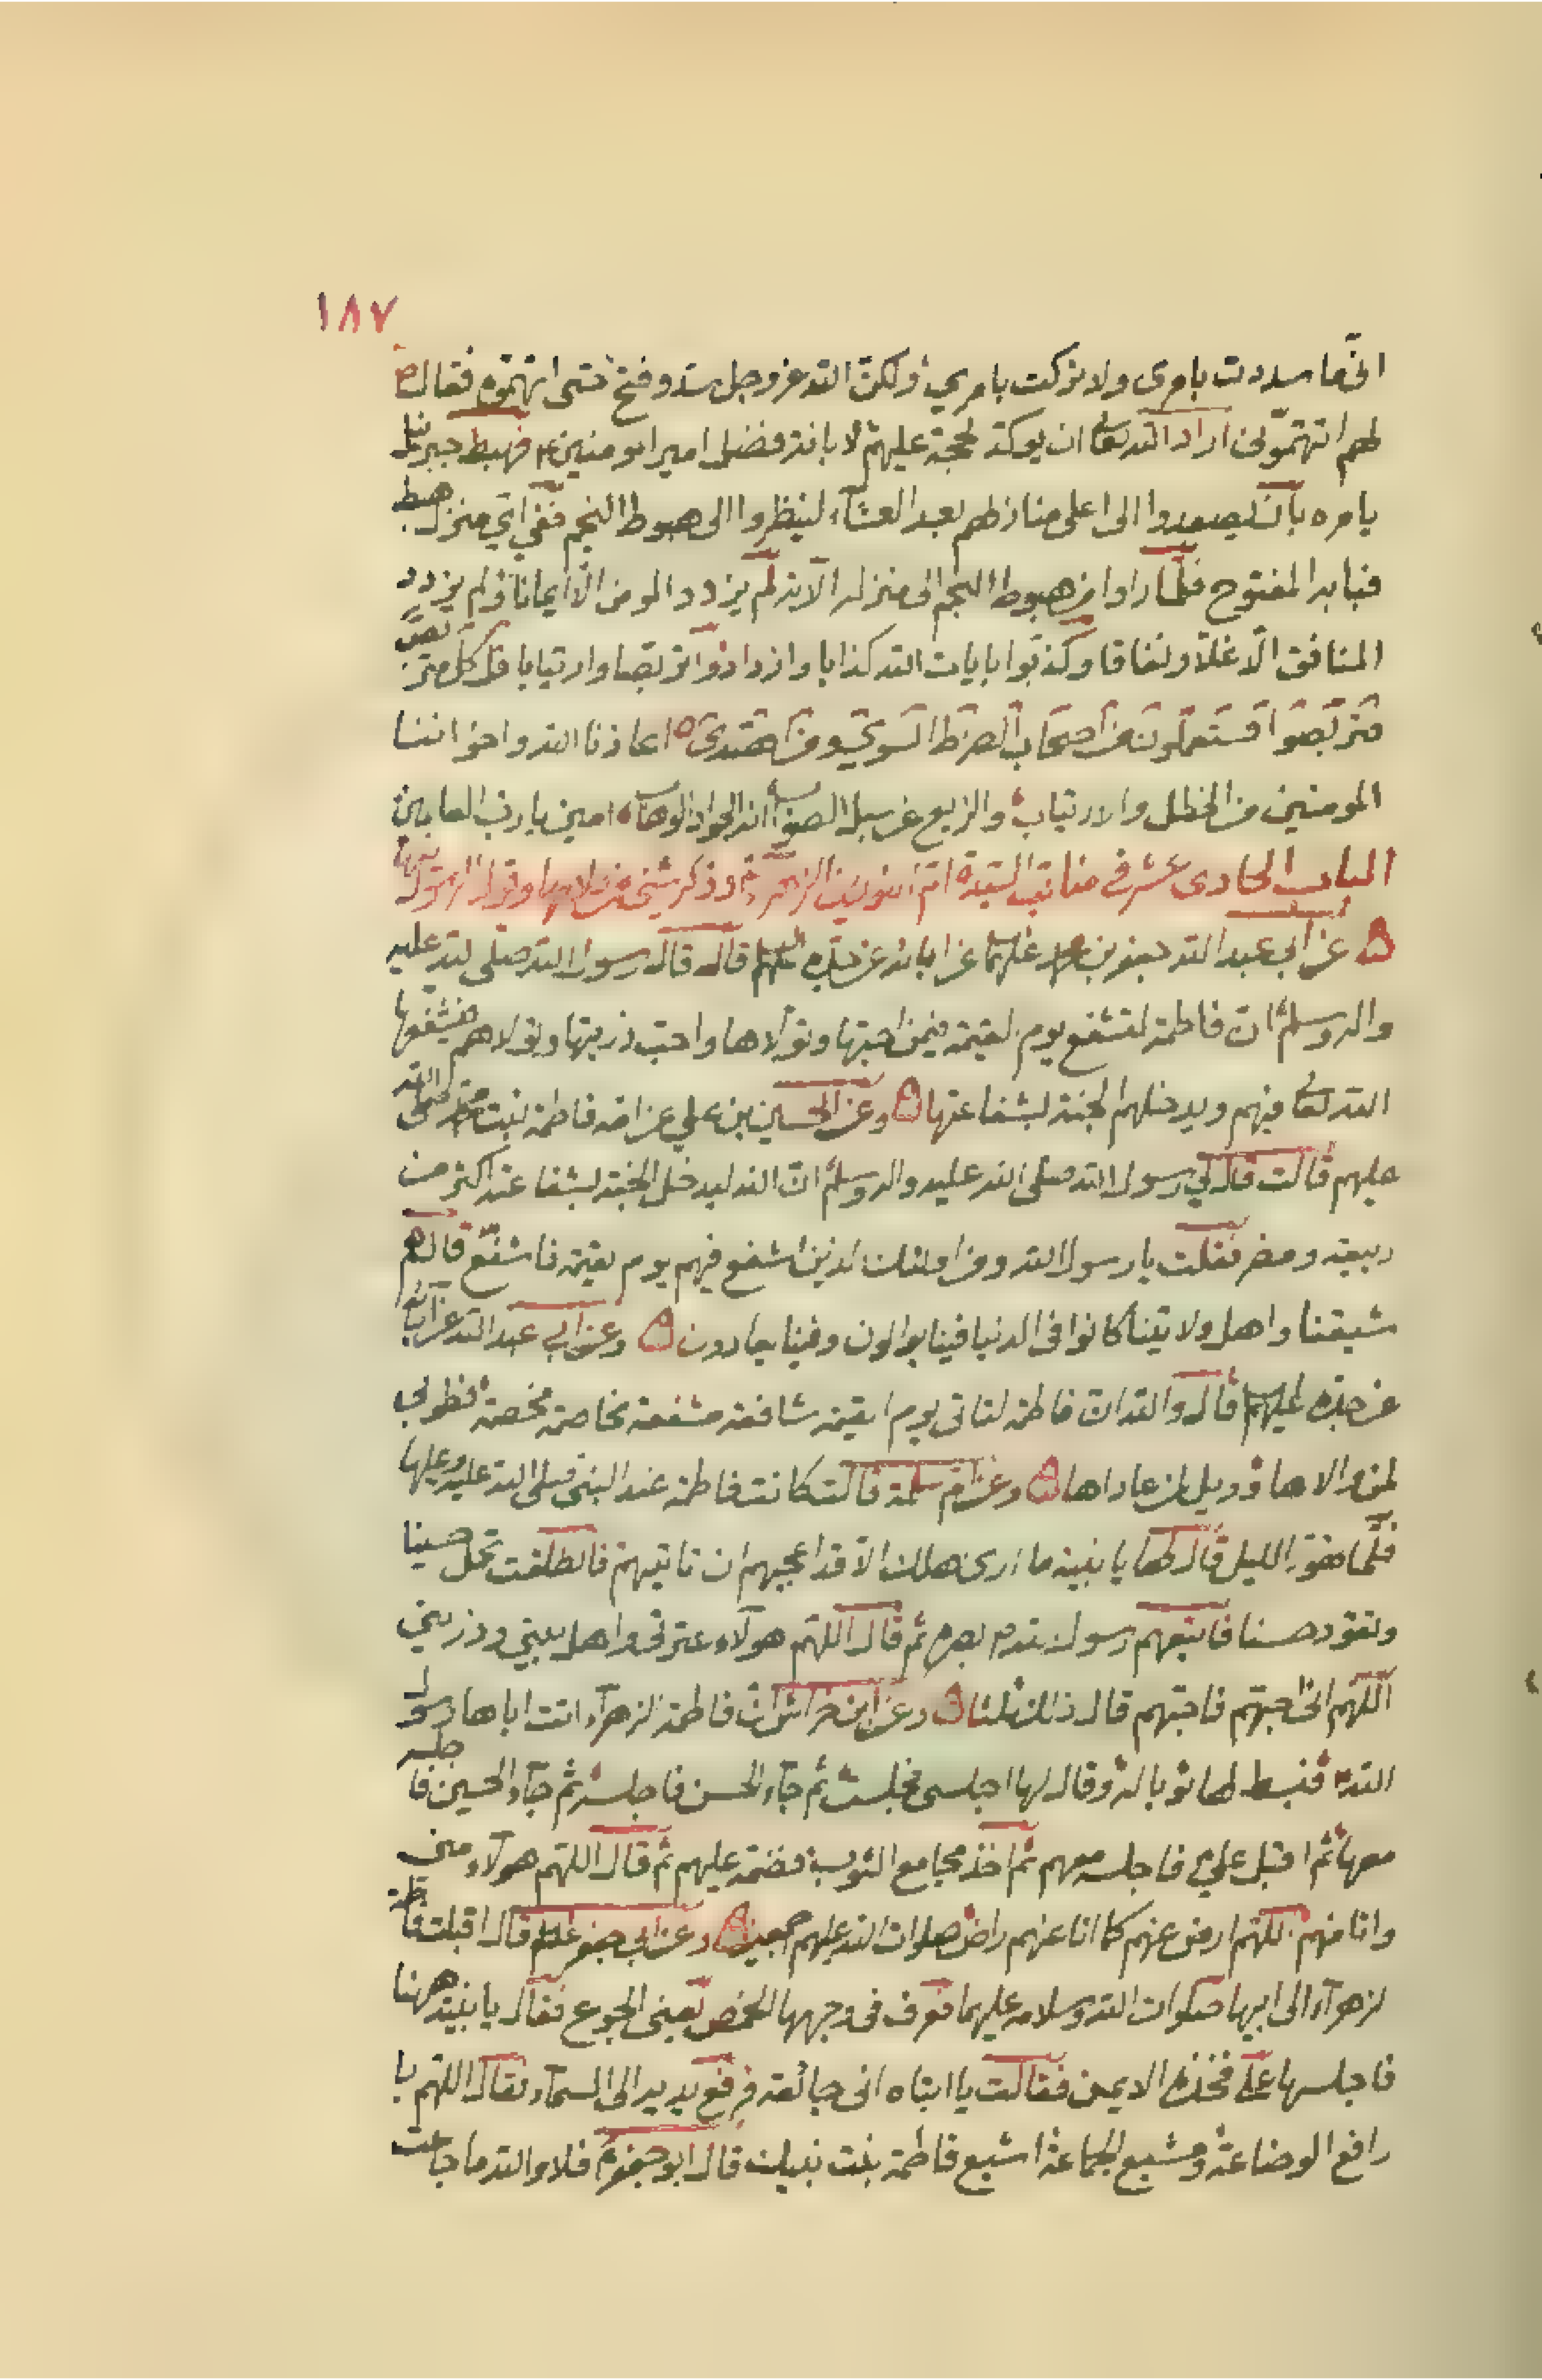 ١٨٧
انى ما سددت بامرى ولا تركت بامري ولكن الله عز وجل سد وفتح حتى اتهموه فقال
لهم اتهمتمونى اراد الله تعا ان يوكد لحجة عليهم لابانة فضل امير المومنين ع فهبط جبرئيل
يامره بان يصعدوا الى اعلى منازلهم بعد العشآء لينظروا الى هبوط النجم ففي اي منزل هبط
فبابه المفتوح فلما راوا من هبوط النجم الى منزله الآية لم يزدد المومن الا ايمانا ولم يزدد
المنافق الا غلا ونفاقا وكذبوا بايات الله كذابا وازدادوا تربصا وارتيابا قل كل متربص
فتربصوا فستعلمون من اصحاب الصراط السوي ومن اهتدى اعاذنا الله واخواننا
المومنين من الخطل والارتياب والزيع عن سبيل الصواب انه الجواد الوهاب امين يا رب العالمين
الباب الحادى عشر في مناقب السيدة ام الزهرآء وذكر شيء من
عن ابي عبد الله جعفر بن محمد عليهما عن ابائه عن جده عليهم قال قال رسول الله صلى الله عليه
واله وسلم ان فاطمة لتشفع يوم القيمة فيمن احبها وتولاها واحب ذريتها وتولاهم فيشفعها
الله تعا فيهم ويدخلهم الجنة بشفاعتها وعن الحسين بن علي عن امه فاطمة بنت محمد صلى الله
عليهم قالت قال لي رسول الله صلى الله عليه واله وسلم ان الله ليدخل الجنة بشفاعتك اكثر من
ربيعة ومضر فقلت يا رسول الله ومن اولئك الذين اشفع فيهم يوم القيمة فاشفع قال هم
شيعتنا واهل ولايتنا كانوا فى الدنيا فينا يوالون وفينا يعادون وعن ابي عبد الله عن ابائه
عن جده عليهم قال والله ان فاطمة لتاتى يوم القيمة شافعة مشفعة مخاصمة مخصمة فطوبى
لمن والاها وويل لمن عاداها وعن ام سلمة قالت كانت فاطمة عند النبي صلى الله عليه وعليها
فلما تهور الليل قال لها يا بنية ما ارى هللك الا قد اعجبهم ان تاتيهم فانطلقت تحمل حسينا
وتقود حسنا فاتبعهم رسول الله بصره ثم قال اللهم هولآء عترتى واهل بيتي وذريتي
اللهم انى احبهم فاحبهم قال ذلك ثلثا وعن ابن خراش ان فاطمة الزهرآء اتت اباها رسول
الله فبسط لها ثوبا له وقال لها اجلسى فجلست ثم جآء الحسن فاجلسه ثم جآء الحسين فاجلسه
معها ثم اقبل علي فاجلسه معهم ثم اخذ مجامع الثوب فضمه عليهم ثم قال اللهم هولآء مني
وانا منهم اللهم ارض عنهم كما انا عنهم راض صلوات الله عليهم اجمعين وعن ابي جعفر قال اقبلت فاطمة
لزهرآء الى ابيها صلوات الله وسلامه عليهما فعرف فى وجهها الخمص يعني الجوع فقال يا بنية ههنا
فاجلسها على فخذه الايمن فقالت يا ابتاه انى جائعة فرفع يديه الى السمآء فقال اللهم يا
رافع الوضاعة ومشبع الجاعة اشبع فاطمة بنت نبيك قال ابو جعفر فلا والله ما جاعت